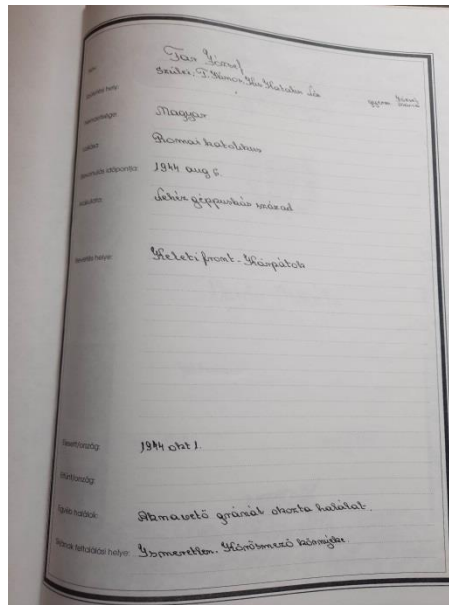 Név: Tar József
Szülei: T. János, Kis Katalin
Születési helye: gyerm. József
Nemzetisége: Magyar
Vallása: Romai katolikus
Bevonulás időpontja: 1944 aug 6.
Alakulata: Nehéz géppuskás század
Bevetés helye: Keleti front - Kárpátok
Elesett/ország: 1944 okt 1.
Eltűnt/ország:
Egyéb halálok: Aknavető gránát okozta halálát.
Sírjának feltalálási helye: Ismeretlen. Kőrösmező környéke.